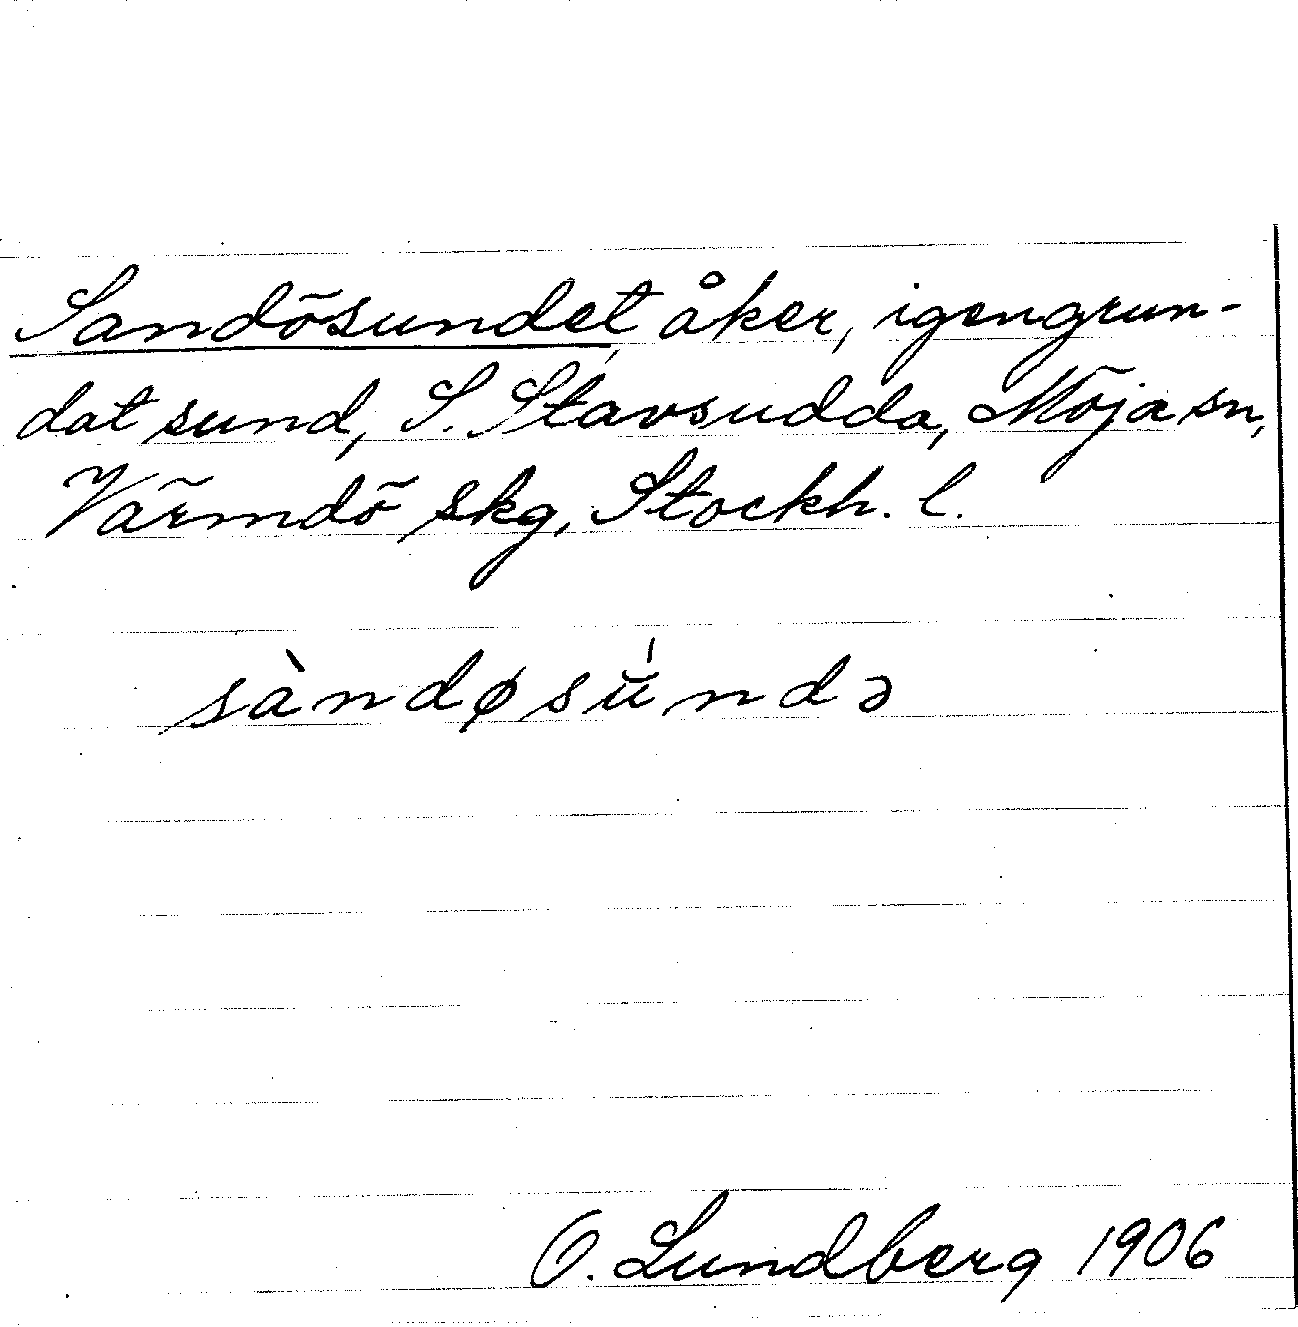 Sandösundet, åker, igengrun-
dat sund, S. Stavsudda, Möja sn,
Värmdö skg, Stockh. l.
sàndøsúndə
O. Lundberg 1906